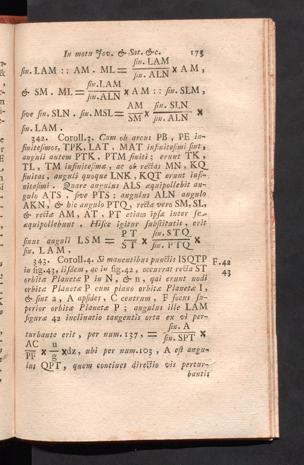 In motu Jov. & Sat. &c. 175
sin. LAM :: AM . ML = sin. LAM / sin. ALN × AM,
& SM . ML = sin. LAM / sin. ALN × AM :: sin. SLM,
sive sin. SLN . sin. MSL = AM / SM × sin. SLN / sin. ALN ×
sin. LAM.
342. Coroll.3. Cum ob arcus PB, PE in-
finitesimos, TPK, LAT, MAT infinitesimi sint,
anguli autem PTK, PTM finiti; erunt TK,
TL, TM infinitesimæ, ac ob rectas MN, KQ
finitas, anguli quoque LNK, KQT erunt infi-
nitesimi. Quare angulus ALS æquipollebit an-
gulo ATS, sive PTS: angulus ALN angulo
AKN, & hic angulo PTQ, recta vero SM, SL,
& rectæ AM, AT, PT etiam ipsæ inter se
æquipollebunt. Hisce igitur substitutis, erit
sinus anguli LSM = PT / ST × sin. STQ / sin. PTQ ×
sin. LAM.
343. Coroll.4. Si manentibus punctis ISQTP F.42
in fig.43, iisdem, ac in fig.42, occurrat recta ST 43
orbitæ Planetæ P in N, & n, qui erunt nodi
orbitæ Planetæ P cum plano orbitæ Planetæ I,
& sint a, A apsides, C centrum, F focus su-
perior orbitæ Planetæ P; angulus ille LAM
figuræ 42 inclinatio tangentis orta ex vi per-
turbante erit, per num. 137, = sin. A / sin. SPT ×
AC / PF × u / g × dz, ubi per num.103, A est angu-
lus QPT, quem continet directio vis pertur-
bantis